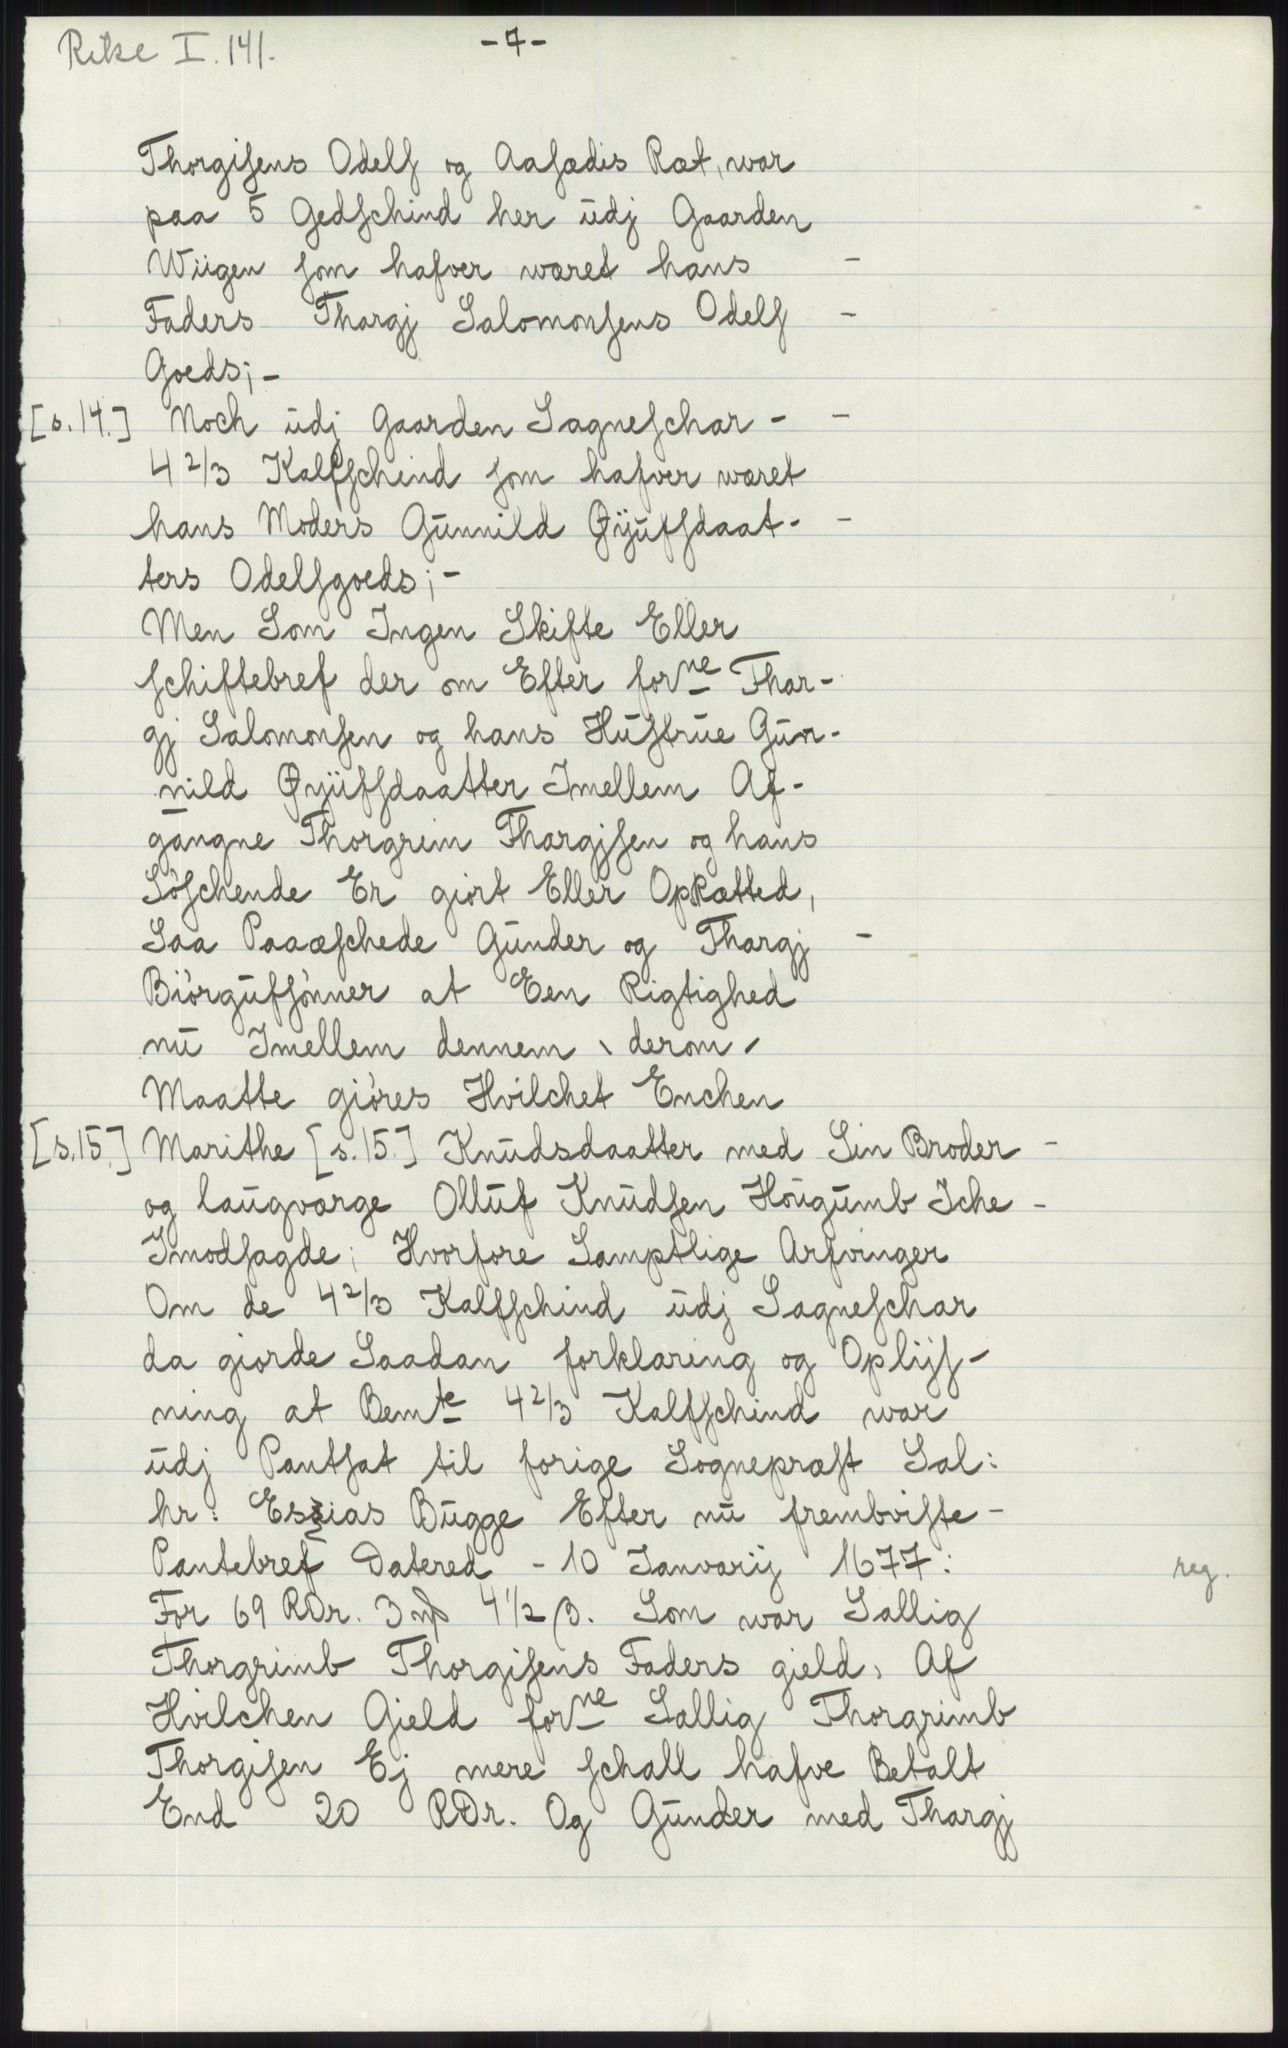 Rike I. 141.
-7-
Thorgisens Odels og Aasædis Ræt, war
paa 5 Gedschind her udj Gaarden
Wiigen som hafver wæret hans -
Faders Thargj Salomonsens Odels -
Goeds; -
[s. 14.] Noch udj Gaarden Sagneschar - -
4 2/3 Kalfschind som hafver wæret
hans Moders Gunnild Øyufsdaat- -
ters Odelsgoeds; -
Men Som Ingen Skifte Eller
schiftebref der om Efter forne Thar-
gj Salomonsen og hans Hustrue Gun-
nild Øyüfsdaatter Imellem Af-
gangne Thorgrim Thargjsen og hans
Søschende Er giort Eller OpRætted,
Saa Paaæschede Gunder og Thargj -
Biørgufsønner at Een Rigtighed
nu Imellem dennem \ derom /
Maatte giøres Hvilchet Enchen
[s. 15.] Marithe [s. 15.] Knudsdaatter med Sin Broder -
og laugværge Olluf Knudsen Hougumb Iche -
Imodsagde; Hvorfore Samptlige Arfvinger
Om de 4 2/3 Kalfschind udj Sagneschar
da giorde Saadan forklaring og Oplijs-
ning at Bemte 4 2/3 Kalfschind war
udj Pantsat til forige Sogneprest Sal:
hr: Esaias Bugge Efter nu frembviste -
Pantebref Datered - 10 Janvarij 1677:
reg.
For 69 RDr. 3 mƒ 4 1/2 β. Som war Sallig
Thorgrimb Thorgisens Faders gield, Af
Hvilchen Gield forne Sallig Thorgrimb
Thorgisen Ej mere schall hafve Betalt
End 20 RDr. Og Gunder med Thargj